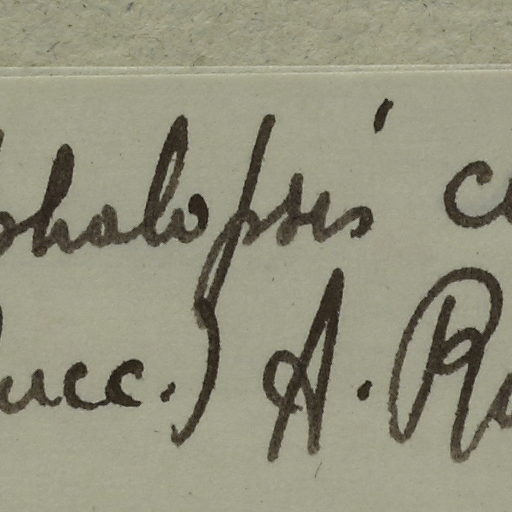 phalopsis c
ucc.) A. R